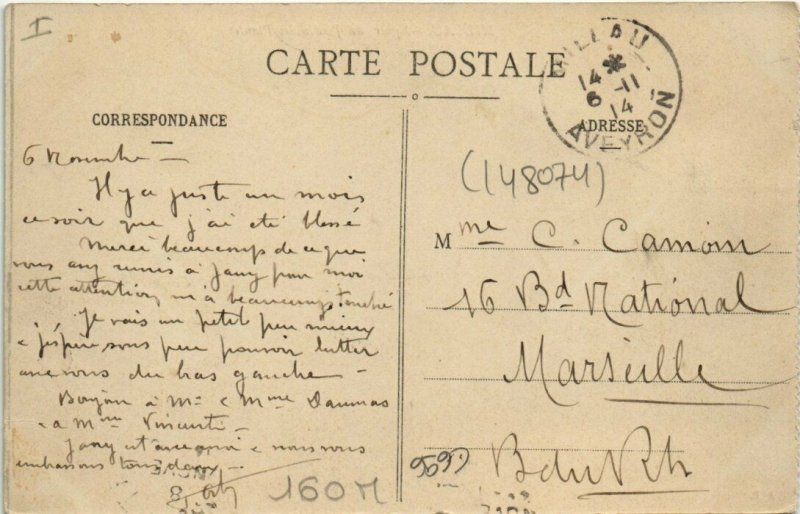 I
CARTE POSTALE
MILLAU
14
6 -11
14
AVEYRON
CORRESPONDANCE
ADRESSE
6 Novembre
Il y a juste un mois
ce soir que j'ai été blessé
Merci beaucoup de ce que
vous avez remis à Jany pour moi
cette attention m'a beaucoup touché
Je vais un petit peu mieux
& j'espère sous peu pouvoir lutter
avec vous du bras gauche
Bonjour à Mr & Mme Daumas
& à Mme Vincenti
Jany est avec moi & nous vous
embrassons tous deux
(148074)
Mme C. Camoin
16 Bd National
Marseille
B du Rh
9599
160M